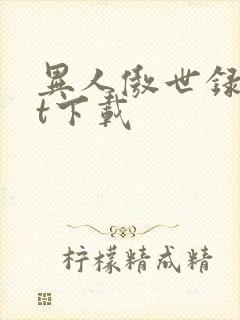 異人傲世録
t下載
柠檬精成精